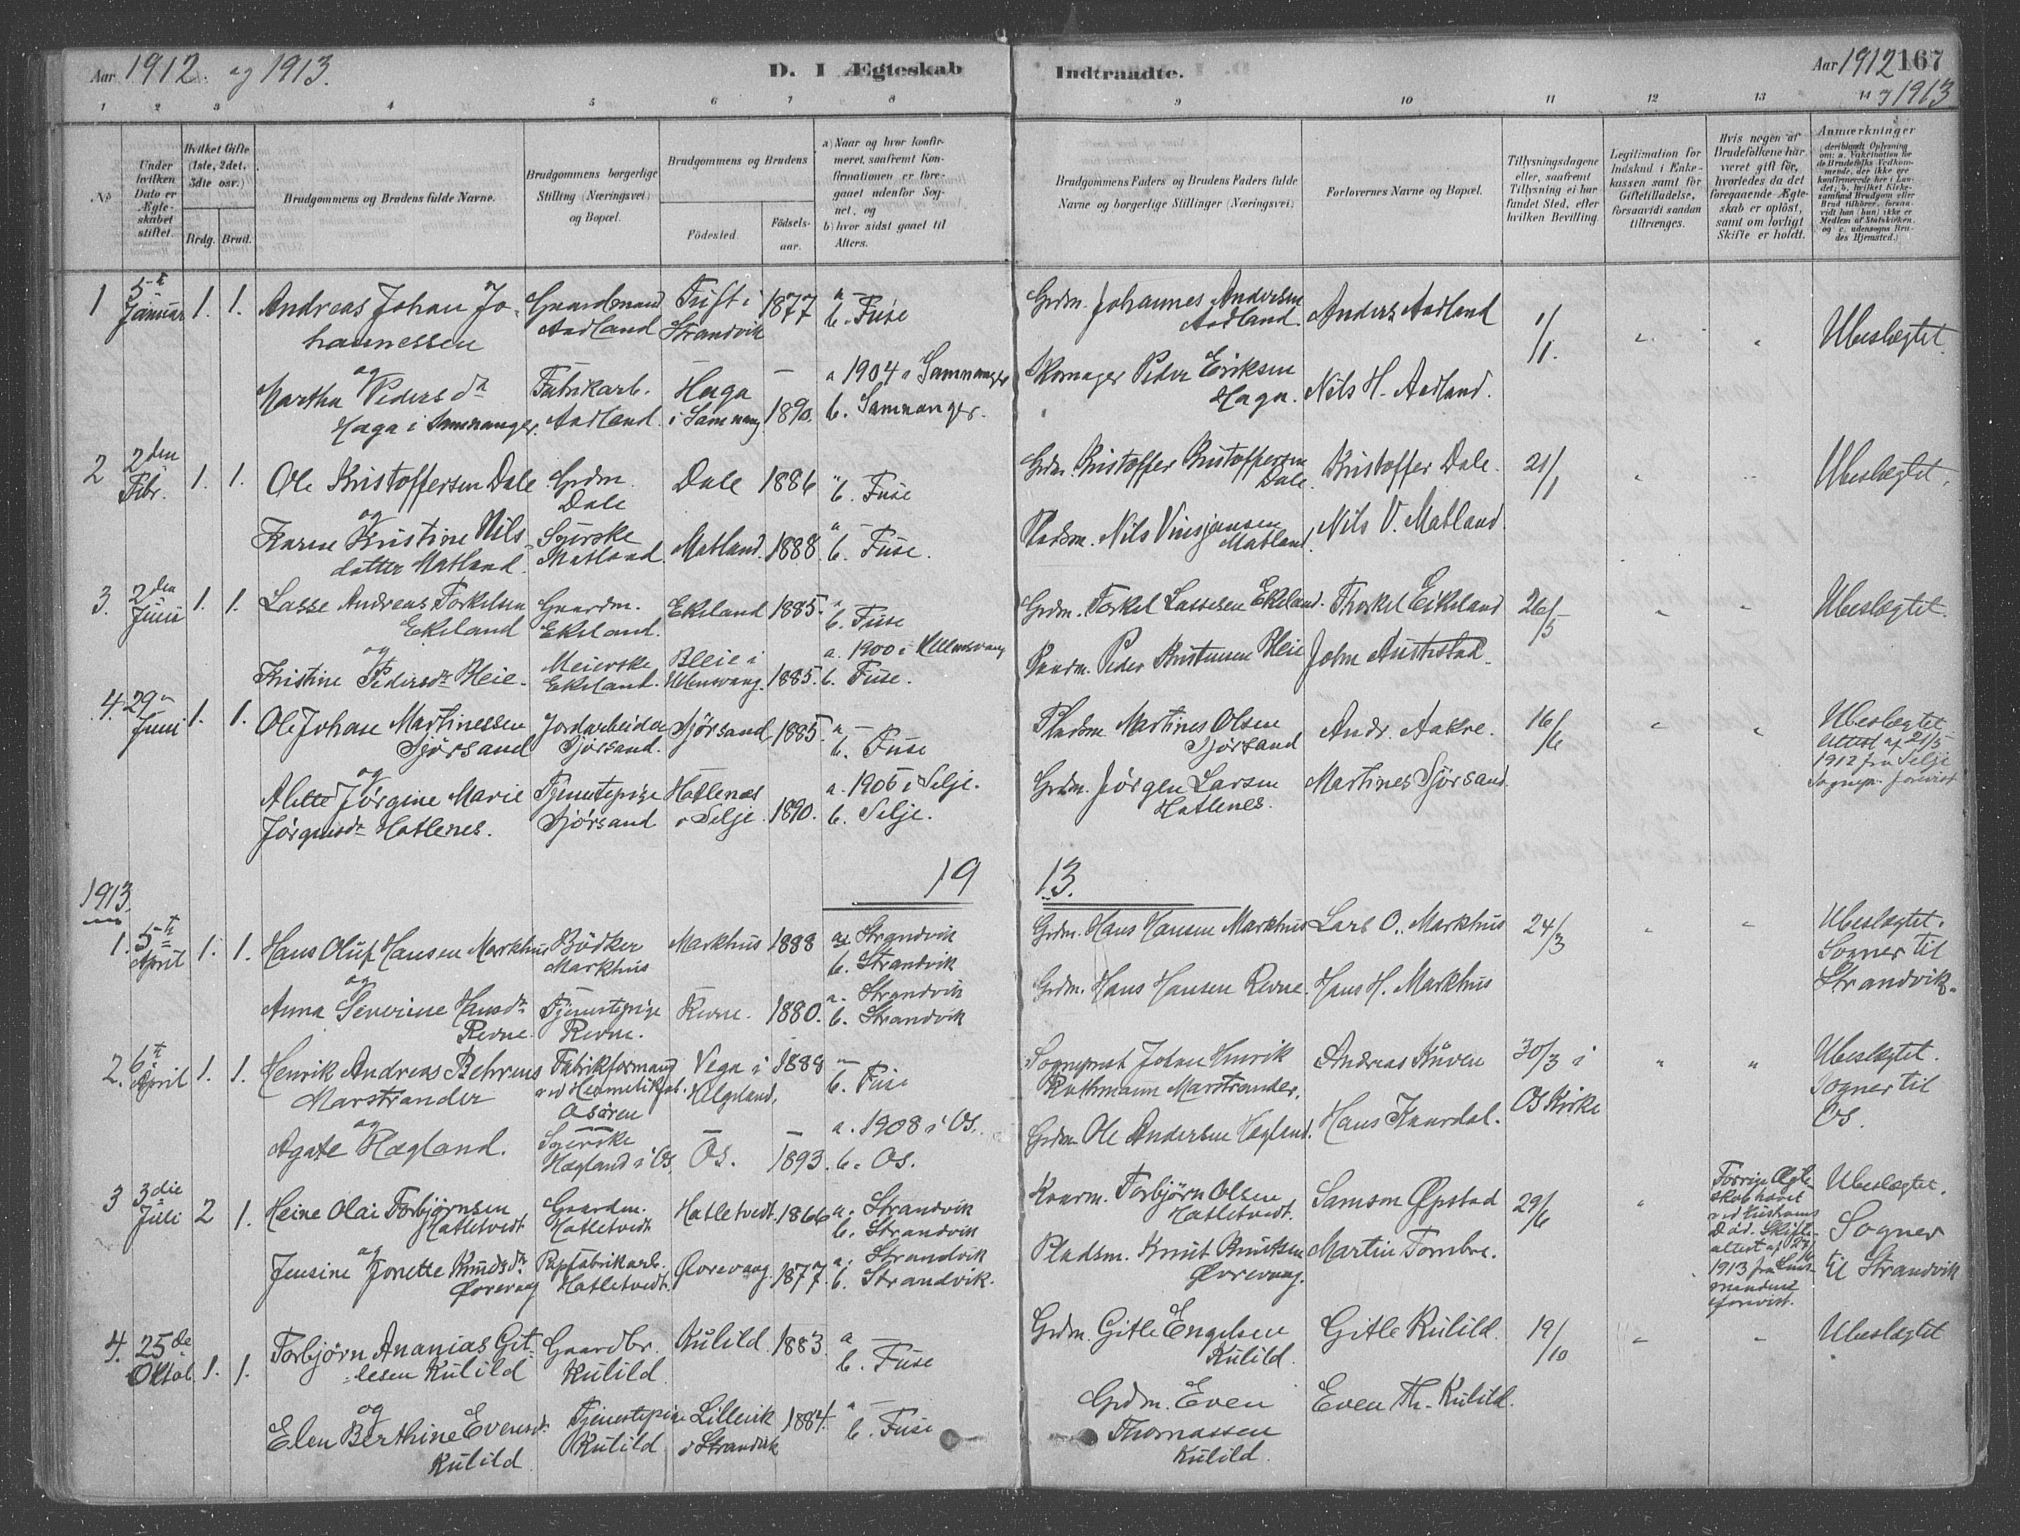 Aar 1912. og 1913.
D. I Ægteskab
Indtraadte.
Aar 1912 167
og 1913
1 2 3 4 5 6 7 8
9 10 11 12 13 14
No.
Under hvilken Dato er Ægteskabet stiftet.
Hvilket Gifte (1ste, 2det, 3die osv.)
Brdg. Brud.
Brudgommens og Brudens fulde Navne.
Brudgommens borgerlige Stilling (Næringsvei) og Bopæl.
Brudgommens og Brudens
Födested.
Födsels-aar.
a) Naar og hvor konfirmeret, saafremt Konfirmationen er foregaaet udenfor Sognet, og
b) hvor sidst gaaet til Alters.
Brudgommens Faders og Brudens Faders fulde Navne og borgerlige Stillinger (Næringsvei)
Forlovernes Navne og Bopæl.
Tillysningsdagene eller, saafremt Tillysning ei har fundet Sted, efter hvilken Bevilling.
Legitimation for Indskud i Enkekassen samt for Giftetilladelse, forsaavidt saadan tiltrænges.
Hvis nogen af Brudefolkene har været gift för, hvorledes da det foregaaende Ægteskab er oplöst, samt om lovligt Skifte er holdt.
Anmærkninger
1 5te Januar 1. 1. Andreas Johan Jo-
hannessen
Gaardmand Aadland
Tuft i Strandvik 1877 a — b. Fuse
Grdm. Johannes Andersen Aadland.
Anders Aadland 1/1. " " Ubeslægtet.
og
Martha Pedersdr
Haga i Samnanger.
Fabrikarb. Aadland.
Haga i Samnang. 1890. a 1904 i Samnanger b. Samnanger.
Skomager Peder Eriksen Haga.
Nils H. Aadland.
2 2den Febr. 1. 1. Ole Kristoffersen Dale
Grdm. Dale
Dale 1886 a b. Fuse
Grdm. Kristoffer Kristoffersen Dale.
Kristoffer Dale. 21/1 " " Ubeslægtet.
og
Karen Kristine Nils
datter Matland
Syerske Matland
Matland. 1888 a — b. Fuse.
Pladsm. Nils Vinsjansen Matland.
Nils V. Matland.
3. 2den Juni 1. 1. Lasse Andreas Torkelsen
Ekeland
Gaardm. Ekeland.
Ekeland 1885. a b. Fuse
Grdm. Torkel Lassesen Ekeland.
Thorkel Eikeland 26/5 " " Ubeslægtet.
og
Kristine Pedersdr Bleie.
Meierske Ekeland.
Bleie i Ullensvang. 1885. a. 1900 i Ullensvang b. Fuse.
Peder Kristensen Bleie
John Austestad.
4. 29 Juni 1. 1. Ole Johan Martinessen
Sjørsand
Jordarbeider Sjørsand.
Sjørsand 1885. a — b. Fuse
Pladsm. Martines Olsen Sjørsand
Andr. Aakre. 16/6 " "
Ubeslægtet
Attest af 21/5
1912 fra Selje
Sognepr. forevist
og
Alette Jørgine Marie
Jørgensdr Hatlenes.
Tjenestepige Sjørsand
Hatlenes i Selje. 1890. a. 1905 i Selje. b. Selje.
Grdm. Jørgen Larsen Hatlenes.
Martines Sjørsand
19 13.
1913.
1. 5te April 1. 1. Hans Oluf Hansen Markhus
Bödker Markhus
Markhus 1888 a. Strandvik b. Strandvik
Grdm. Hans Hansen Markhus
Lars O. Markhus 24/3 " "
Ubeslægtet.
Sogner til
Strandvik.
og
Anna Severine Hansdr
Revne.
Tjenestepige Revne.
Revne. 1880. a. Strandvik b. Strandvik
Grdm. Hans Hansen Revne.
Hans H. Markhus
2. 6te April 1. 1. Henrik Andreas Behrens
Marstrander
Fabrikformand ved Hermetikfab. Osören
Vega i Helgeland. 1888 a — b. Fuse
Sogneprest Johan Henrik Rathmann Marstrander.
Andreas Kuven 30/3 i Os Kirke " "
Ubeslægtet.
Sogner til
Os.
og
Agate Hægland.
Syerske Hægland i Os.
Os. 1893. a. 1908 i Os. b. Os.
Grdm. Ole Andersen Hægland.
Hans Kaardal.
3 3die Juli 2 1. Heine Olai Torbjørnsen
Hatletvedt
Gaardm. Hatletvedt
Hatletvedt. 1866 a. Strandvik b. Strandvik
Torbjørn Olsen Hatletvedt.
Samson Øpstad 29/6 "
Forrige Ægte-
skab hævet
ved Hustruens
Död. Skifte-
attest af
1913 fra Lens-
manden
forevist.
Ubeslægtet.
Sogner
til Strandvik
og
Jensine Jonette Knudsdr
Øvrevaag
Papfabrikarb. Hatletvedt.
Øvrevaag 1877. a. Strandvik b. Strandvik.
Pladsm. Knut Knutsen Øvrevaag.
Martin Tombre.
4. 25de Oktob. 1. 1. Torbjörn Ananias Git-
lesen Kulild
Gaardbr. Kulild
Kulild. 1883. a — b. Fuse
Grdm. Gitle Engelsen Kulild.
Gitle Kulild. 19/10 " " Ubeslægtet
og
Elen Berthine Evensdr
Kulild
Tjenestepige Kulild
Lillevik i Strandvik 1884. a — b. Fuse
Grdm. Even Thomassen Kulild.
Even Th. Kulild.